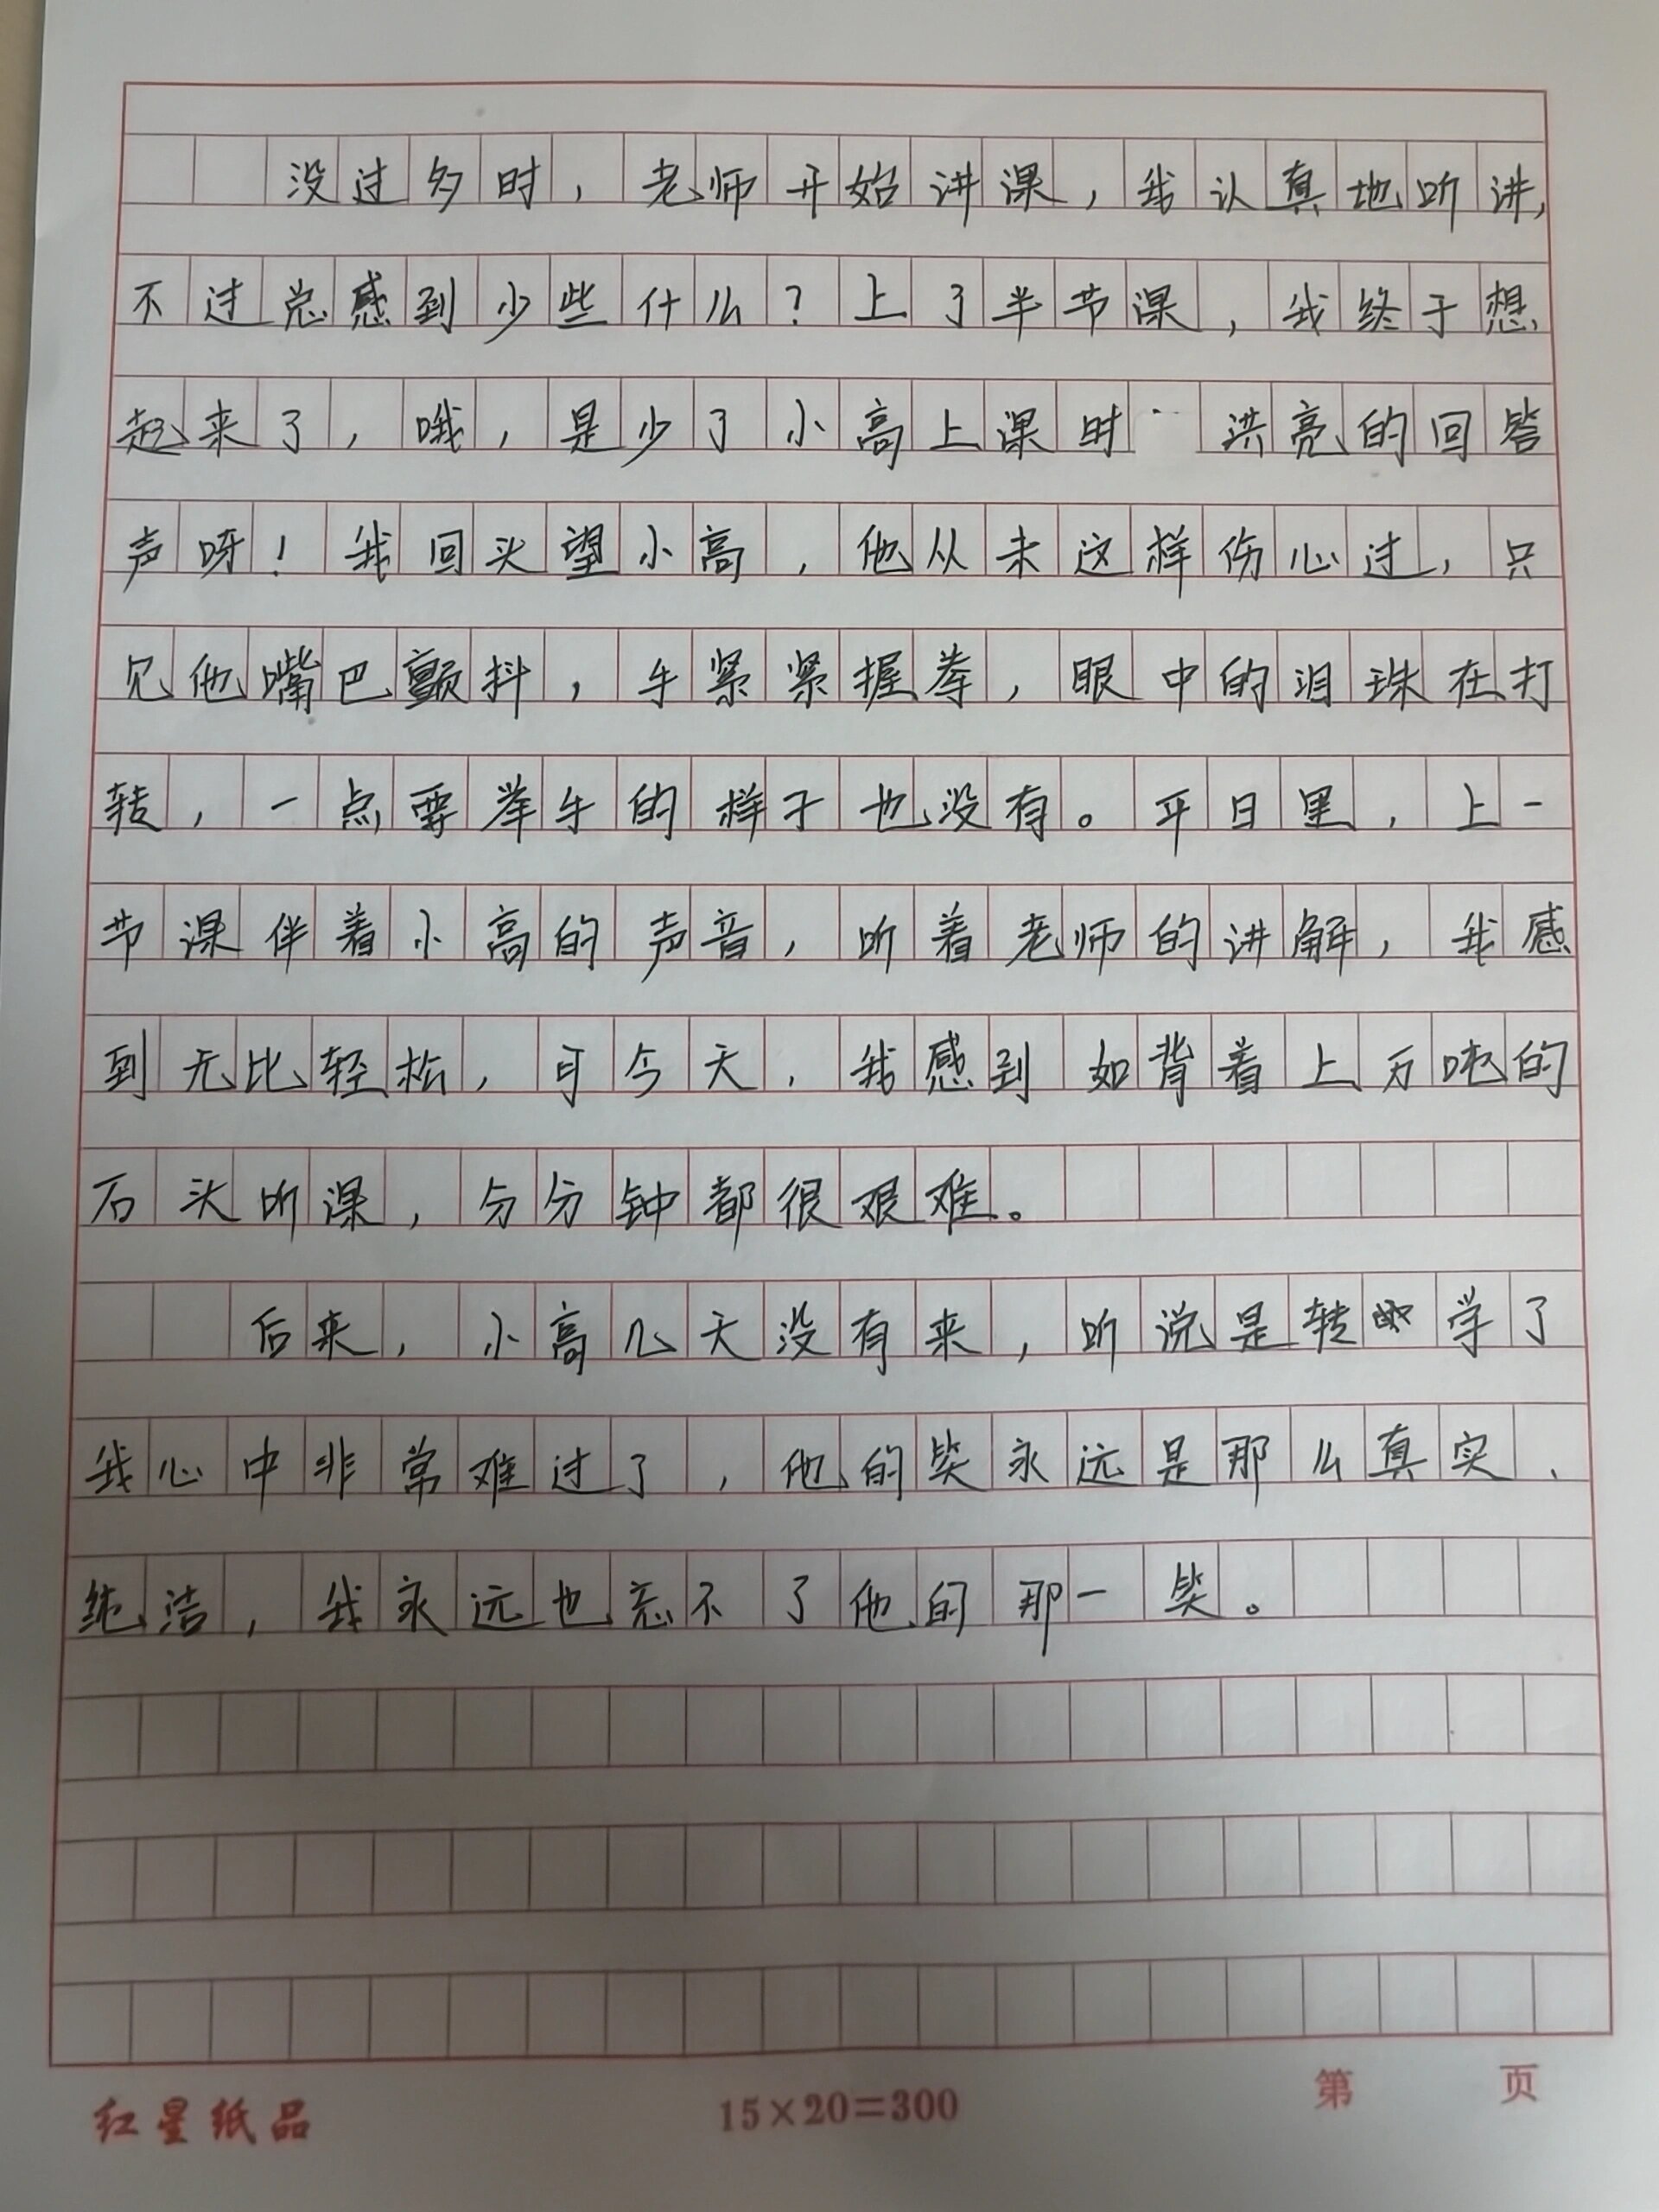 没过多时，老师开始讲课，我认真地听讲，
不过总感到少些什么？上了半节课，我终于想
起来了，哦，是少了小高上课时洪亮的回答
声呀！我回头望小高，他从未这样伤心过，只
见他嘴巴颤抖，手紧紧握拳，眼中的泪珠在打
转，一点要举手的样子也没有。平日里，上一
节课伴着小高的声音，听着老师的讲解，我感
到无比轻松，可今天，我感到如背着上万吨的
石头听课，分分钟都很艰难。
后来，小高几天没有来，听说是转学了
我心中非常难过了，他的笑永远是那么真实、
纯洁，我永远也忘不了他的那一笑。
红星纸品 15×20=300 第 页